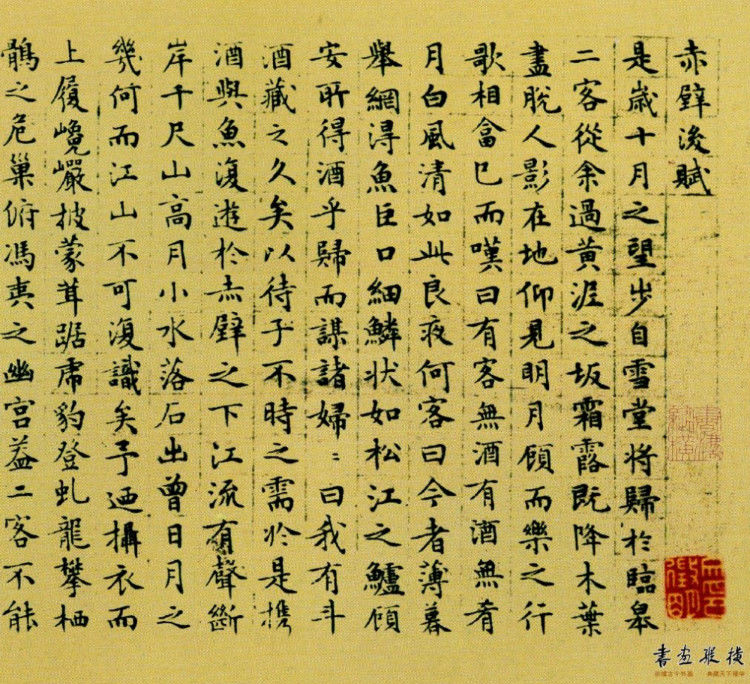 赤壁後賦
是歲十月之望步自雪堂將歸於臨皋
二客從余過黃泥之坂霜露既降木葉
盡脫人影在地仰見明月顧而樂之行
歌相畣已而嘆曰有客無酒有酒無肴
月白風清如此良夜何客曰今者薄暮
舉網得魚巨口細鱗狀如松江之鱸顧
安所得酒乎歸而謀諸婦〻曰我有斗
酒藏之久矣以待子不時之需於是攜
酒與魚復遊於赤壁之下江流有聲斷
岸千尺山高月小水落石出曾日月之
幾何而江山不可復識矣予迺攝衣而
上履巉巖披蒙茸踞虎豹登虬龍攀栖
鶻之危巢俯馮夷之幽宮蓋二客不能
書畫縱橫